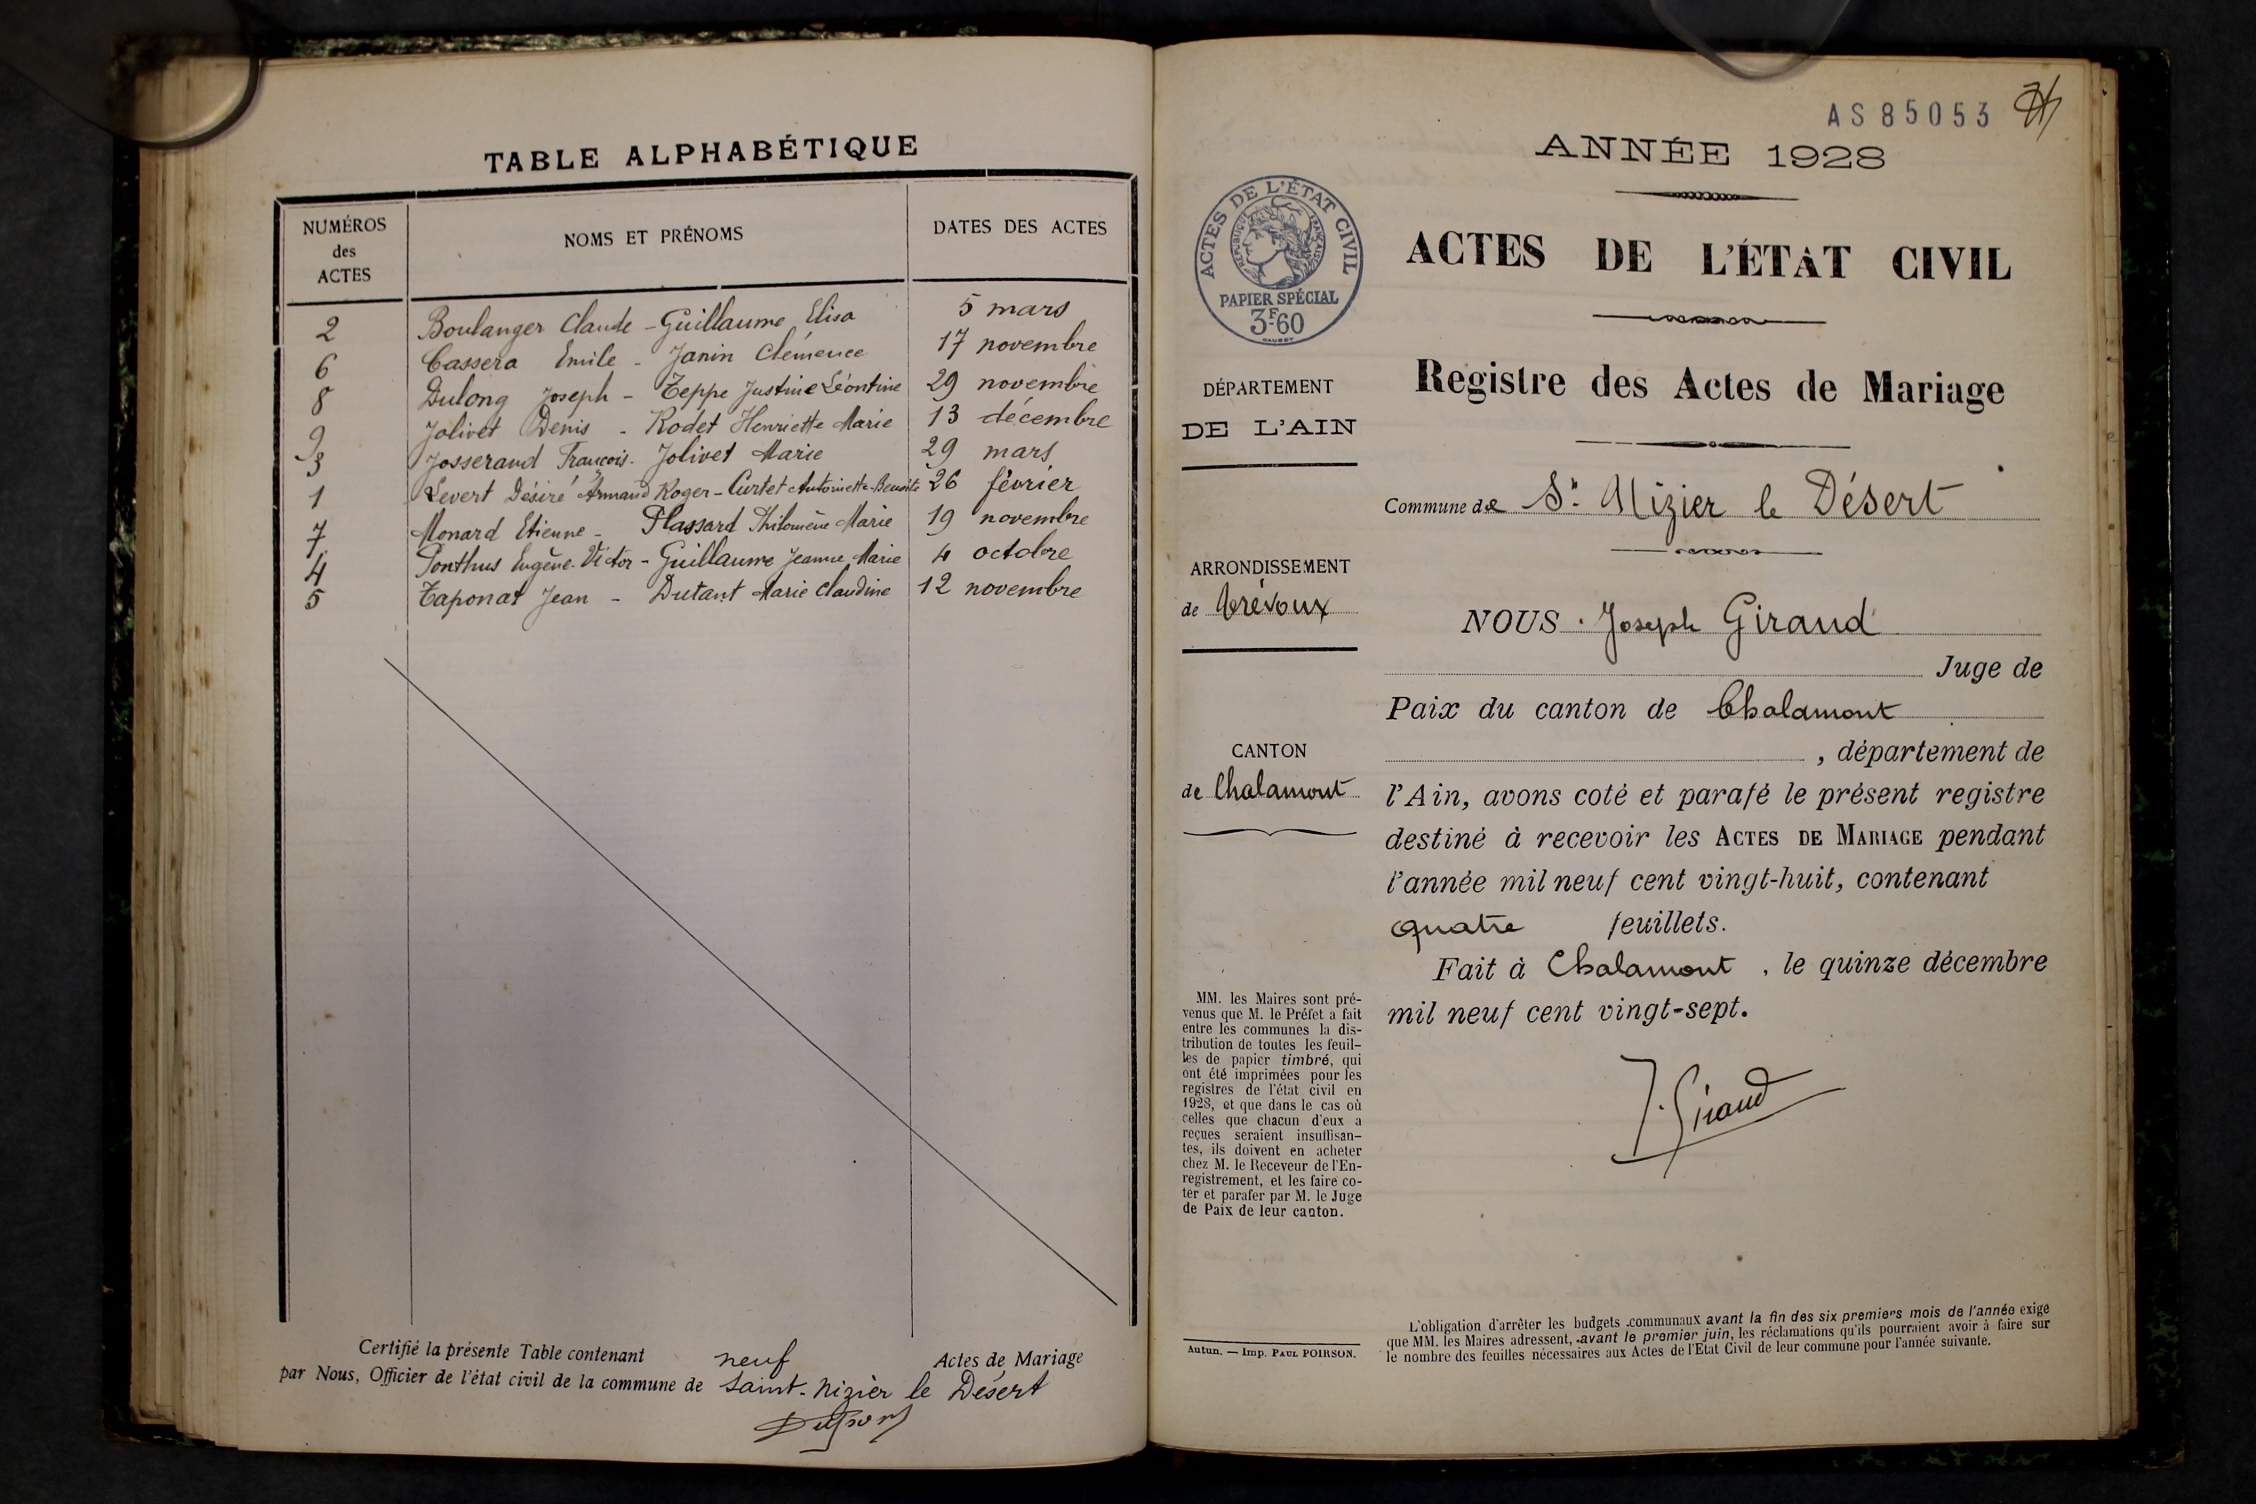 TABLE ALPHABÉTIQUE
NUMÉROS des ACTES
NOMS ET PRÉNOMS
DATES DES ACTES
2 Boulanger Claude - Guillaume Elisa 5 mars
6 Cassera Emile - Janin Clémence 17 novembre
8 Dulong Joseph - Teppe Justine Léontine 29 novembre
9 Jolivet Denis - Rodet Henriette Marie 13 décembre
3 Josserand François - Jolivet Marie 29 mars
1 Levert Désiré Armand Roger - Curtet Antoinette-Benoite 26 février
7 Monard Etienne - Plassard Philomène Marie 19 novembre
4 Ponthus Eugène-Victor - Guillaume Jeanne Marie 4 octobre
5 Taponat Jean - Dutant Marie Claudine 12 novembre
Certifié la présente Table contenant neuf Actes de Mariage
par Nous, Officier de l'état civil de la commune de Saint-Nizier le Désert
AS 85053
ANNÉE 1928
ACTES DE L'ÉTAT CIVIL
RÉPUBLIQUE FRANÇAISE
PAPIER SPÉCIAL
3F60
ACTES DE L'ÉTAT CIVIL
Registre des Actes de Mariage
DÉPARTEMENT
DE L'AIN
Commune de St Nizier le Désert
ARRONDISSEMENT
de Trévoux
NOUS Joseph Giraud
Juge de
Paix du canton de Chalamont
CANTON
de Chalamont
, département de
l'Ain, avons coté et parafé le présent registre
destiné à recevoir les ACTES DE MARIAGE pendant
l'année mil neuf cent vingt-huit, contenant
quatre feuillets.
Fait à Chalamont, le quinze décembre
mil neuf cent vingt-sept.
J. Giraud
MM. les Maires sont pré-
venus que M. le Préfet a fait
entre les communes la dis-
tribution de toutes les feuil-
les de papier timbré, qui
ont été imprimées pour les
registres de l'état civil en
1928, et que dans le cas où
celles que chacun d'eux a
reçues seraient insuffisan-
tes, ils doivent en acheter
chez M. le Receveur de l'En-
registrement, et les faire co-
ter et parafer par M. le Juge
de Paix de leur canton.
Autun. — Imp. PAUL POIRSON.
L'obligation d'arrêter les budgets communaux avant la fin des six premiers mois de l'année exige
que MM. les Maires adressent, avant le premier juin, les réclamations qu'ils pourraient avoir à faire sur
le nombre des feuilles nécessaires aux Actes de l'Etat Civil de leur commune pour l'année suivante.